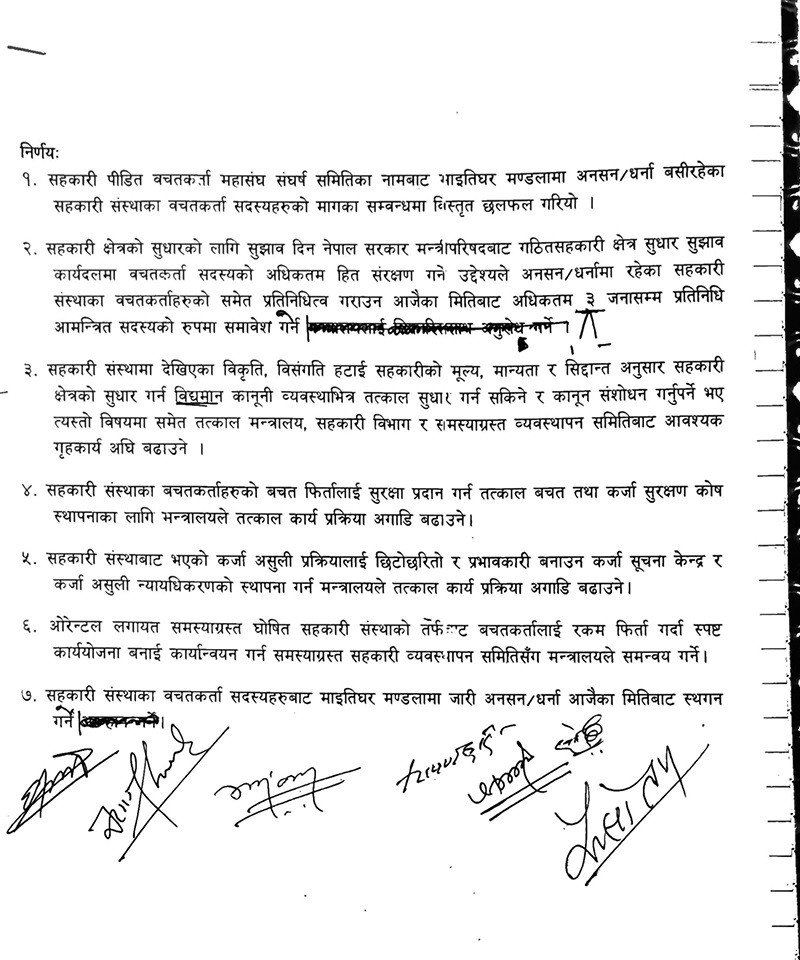 निर्णयः
१. सहकारी पीडित बचतकर्ता महासंघ संघर्ष समितिका नामबाट माइतिघर मण्डलामा अनसन/धर्ना बसीरहेका
सहकारी संस्थाका वचतकर्ता सदस्यहरुको मागका सम्वन्धमा विस्तृत छलफल गरियो ।
२. सहकारी क्षेत्रको सुधारको लागि सुझाव दिन नेपाल सरकार मन्त्रीपरिषदबाट गठितसहकारी क्षेत्र सुधार सुझाव
कार्यदलमा वचतकर्ता सदस्यको अधिकतम हित संरक्षण गर्ने उद्देश्यले अनसन/धर्नामा रहेका सहकारी
संस्थाका वचतकर्ताहरुको समेत प्रतिनिधित्व गराउन आजैका मितिबाट अधिकतम ३ जनासम्म प्रतिनिधि
आमन्त्रित सदस्यको रुपमा समावेश गर्ने
३. सहकारी संस्थामा देखिएका विकृति, विसंगति हटाई सहकारीको मूल्य, मान्यता र सिद्दान्त अनुसार सहकारी
क्षेत्रको सुधार गर्न विद्यमान कानूनी व्यवस्थाभित्र तत्काल सुधार गर्न सकिने र कानून संशोधन गर्नुपर्ने भए
त्यस्तो विषयमा समेत तत्काल मन्त्रालय, सहकारी विभाग र समस्याग्रस्त व्यवस्थापन समितिबाट आवश्यक
गृहकार्य अघि बढाउने ।
४. सहकारी संस्थाका बचतकर्ताहरुको बचत फिर्तालाई सुरक्षा प्रदान गर्न तत्काल बचत तथा कर्जा सुरक्षण कोष
स्थापनाका लागि मन्त्रालयले तत्काल कार्य प्रक्रिया अगाडि बढाउने।
५. सहकारी संस्थाबाट भएको कर्जा असुली प्रक्रियालाई छिटोछरितो र प्रभावकारी बनाउन कर्जा सूचना केन्द्र र
कर्जा असुली न्यायधिकरणको स्थापना गर्न मन्त्रालयले तत्काल कार्य प्रक्रिया अगाडि बढाउने।
६. ओरेन्टल लगायत समस्याग्रस्त घोषित सहकारी संस्थाको तर्फबाट बचतकर्तालाई रकम फिर्ता गर्दा स्पष्ट
कार्ययोजना बनाई कार्यान्वयन गर्न समस्याग्रस्त सहकारी व्यवस्थापन समितिसँग मन्त्रालयले समन्वय गर्ने।
७. सहकारी संस्थाका वचतकर्ता सदस्यहरुबाट माइतिघर मण्डलामा जारी अनसन/धर्ना आजैका मितिबाट स्थगन
गर्ने ।